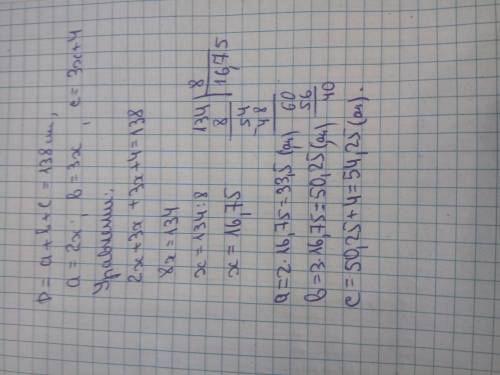 P = a + b + c = 138 см,
a = 2x; b = 3x, c = 3x+4
Уравнение:
2x + 3x + 3x + 4 = 138
8x = 134
x = 134 : 8
x = 16,75
134 | 8
8 | 16,75
54
48
60
56
40
a = 2·16,75 = 33,5 (см)
b = 3·16,75 = 50,25 (см)
c = 50,25 + 4 = 54,25 (см).